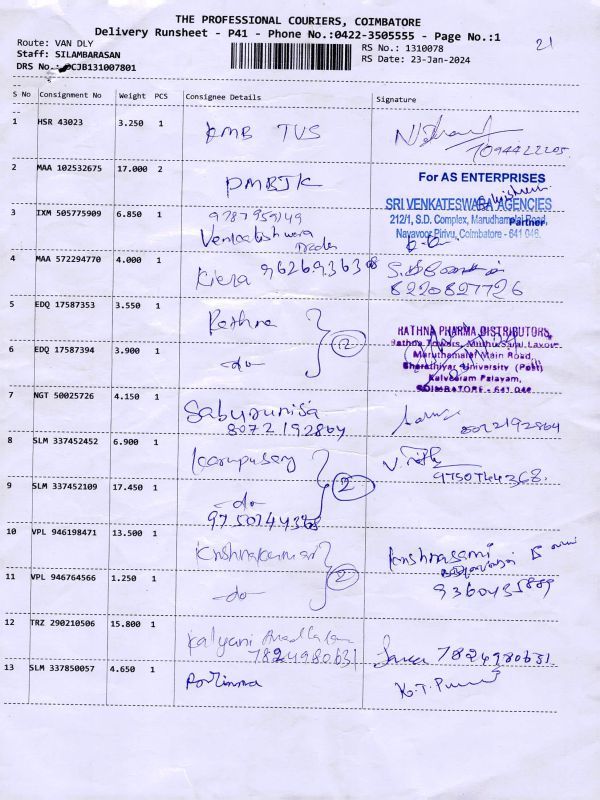 THE PROFESSIONAL COURIERS, COIMBATORE
Delivery Runsheet - P41 - Phone No.:0422-3505555 - Page No.:1
21
Route: VAN DLY
RS No.: 1310078
Staff: SILAMBARASAN
RS Date: 23-Jan-2024
DRS No.: CJB131007801
S No Consignment No Weight PCS Consignee Details Signature
1 HSR 43023 3.250 1 KMB TVS
2 MAA 102532675 17.000 2 PMBJK
For AS ENTERPRISES
SRI VENKATESWARA AGENCIES
212/1, S.D. Complex, Marudhamalai Road,
Partner
Navavoor Pirivu, Coimbatore - 641 046.
3 IXM 505775909 6.850 1
4 MAA 572294770 4.000 1 8220827726
5 EDQ 17587353 3.550 1 Rathna
2
6 EDQ 17587394 3.900 1 -do-
RATHNA PHARMA DISTRIBUTORS,
Rathna Towers, Layout,
Maruthamalai Main Road,
Bharathiyar University (Post)
Kalveeram Palayam,
COIMBATORE - 641 046
7 NGT 50025726 4.150 1 Saburunisa
8072192864 8072192864
8 SLM 337452452 6.900 1 Karupusamy
2
9750744368.
9 SLM 337452109 17.450 1 -do-
9750744368
10 VPL 946198471 13.500 1 Krishnakumari Krishnasami
2
11 VPL 946764566 1.250 1 -do- 9360435889
12 TRZ 290210506 15.800 1 Kalyani
7824980631 7824980631.
13 SLM 337850057 4.650 1